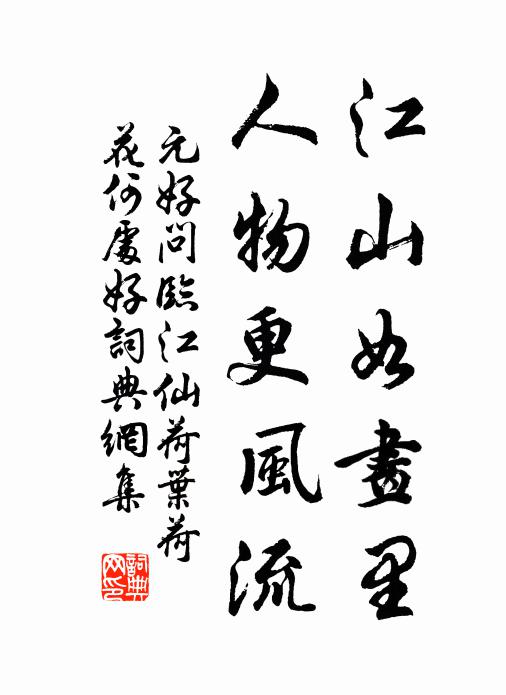 江山如畫里
人物更風流
元好問臨江仙荷葉荷
花何處好詞典網集
詞典網印